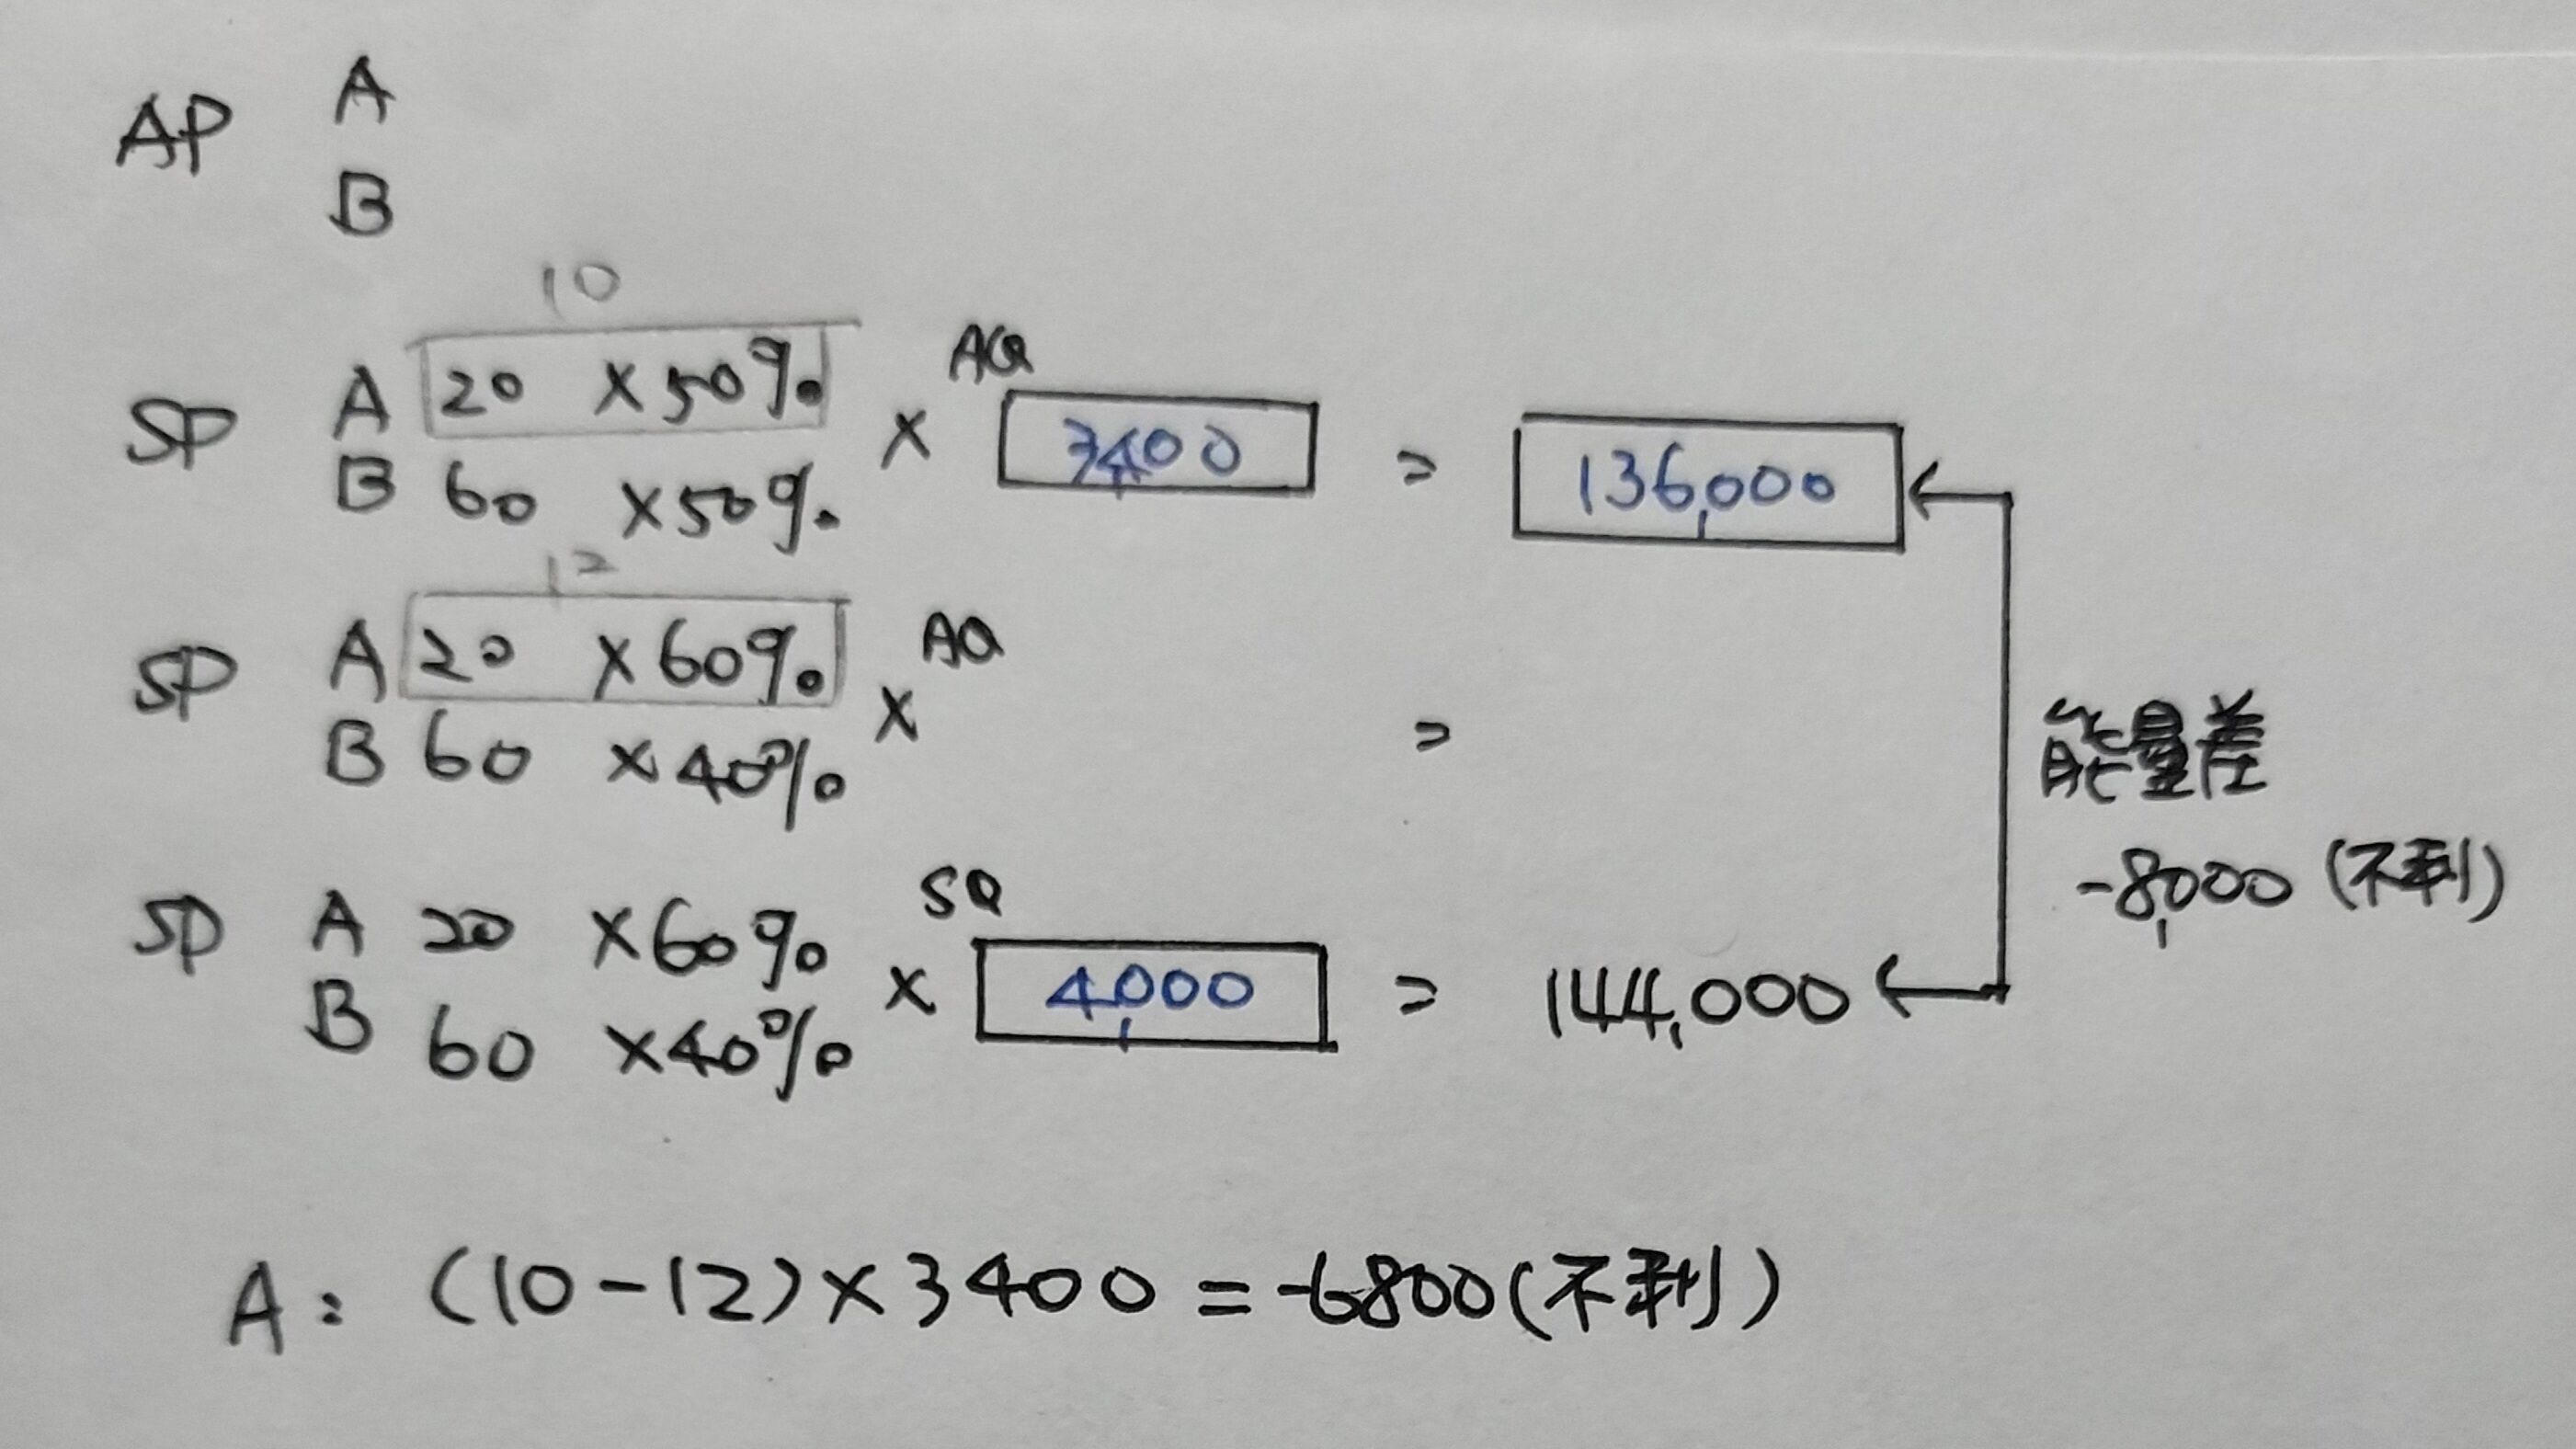 AP A
B
10
SP A 20 ×50% × AQ 3,400 = 136,000
B 60 ×50%
12
SP A 20 ×60% × AQ =
B 60 ×40%
能量差
-8,000 (不利)
SP A 20 ×60% × SQ 4,000 = 144,000
B 60 ×40%
A: (10-12)×3400=-6800(不利)